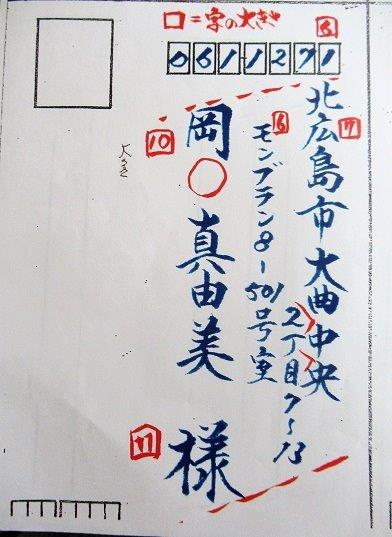 口=字の大きさ
6
0611271
7
北広島市大曲中央
2丁目7~13
6
モンブラン8-501号室
10
岡○真由美
11
様
大き